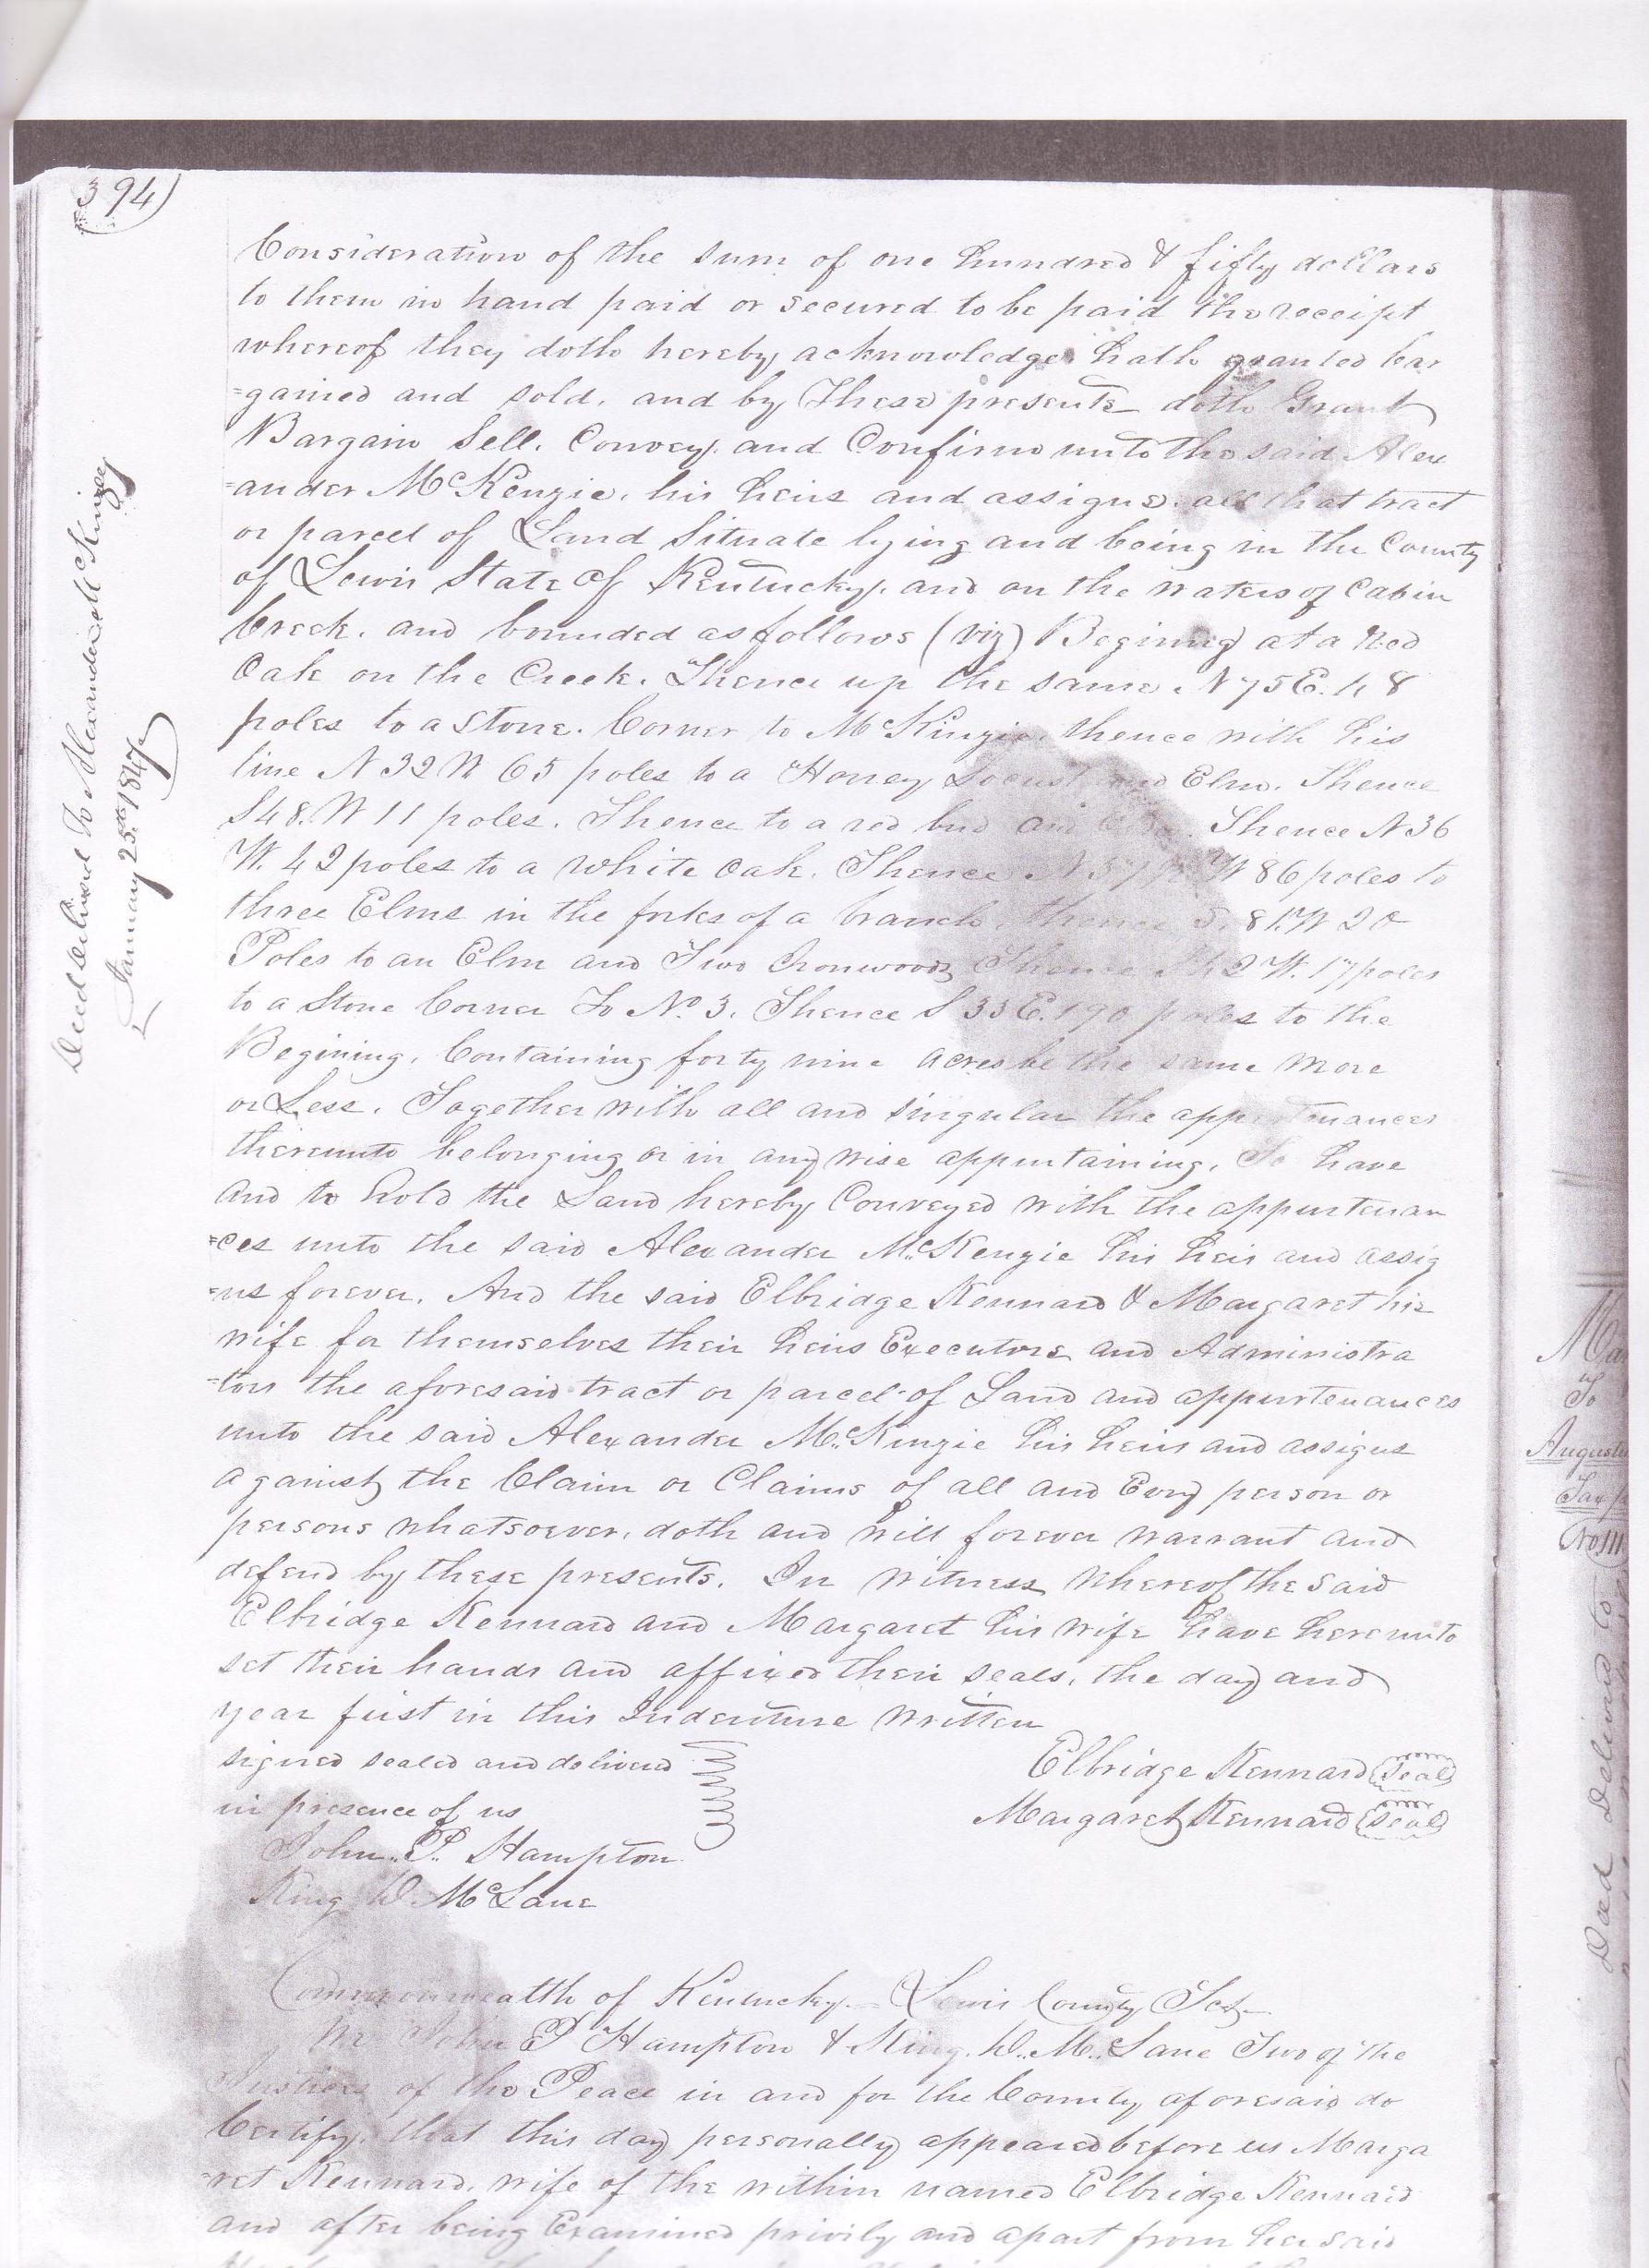 394)
Deed delivered To Alexander McKinzey
January 25th 1847
Consideration of the sum of one hundred & fifty dollars
to them in hand paid or secured to be paid the receipt
whereof they doth hereby acknowledge hath granted bar
=gained and sold, and by These presents doth Grant
Bargain Sell. Convey, and Confirm unto the said Alex
=ander McKenzie, his heirs and assigns, all that tract
or parcel of Land Situate lying and being in the County
of Lewis State of Kentucky, and on the waters of Cabin
Creek, and bounded as follows (viz) Begining at a Red
Oak on the Creek. Thence up the same N 75 E. 48
poles to a stone. Corner to McKinzie, thence with his
line N 32 W 65 poles to a Honey Locust and Elm. Thence
S 48. W 11 poles. Thence to a red bud and Thence N 36
W. 42 poles to a white Oak. Thence W 86 poles to
three Elms in the forks of a branch, thence S. 81. W 20
Poles to an Elm and Two Ironwoods Thence S 42 W. 17 poles
to a Stone Corner To No. 3. Thence S 33 E. 190 poles to the
Begining, Containing forty nine acres be the same more
or Less. Together with all and singular the appurtenances
thereunto belonging or in any wise appurtaining, To have
and to hold the Land hereby Conveyed with the appurtenan
=ces unto the said Alexander McKenzie his heir and assig
=ns forever. And the said Elbridge Kennard & Margaret his
wife for themselves their heirs Executors and Administra
=tors the aforesaid tract or parcel of Land and appurtenances
unto the said Alexander McKinzie his heirs and assigns
against the Claim or Claims of all and Evry person or
persons whatsoever, doth and will forever warrant and
defend by these presents. In witness whereof the said
Elbridge Kennard and Margaret his wife have hereunto
set their hands and affixed their seals, the day and
year first in this Indenture written
signed sealed and delivered
in presence of us
John. P. Hampton
King D. McLane
Elbridge Kennard (Seal)
Margaret Kennard (Seal)
Commonwealth of Kentucky Lewis County Sct
We John P Hampton & King. D. McLane Two of the
Justices of the Peace in and for the County aforesaid do
Certify, that this day personally appeared before us Marga
=ret Kennard, wife of the within named Elbridge Kennard
and after being Examined privily and apart from her said
To
August
Tax
No 111
Deed Delivered to